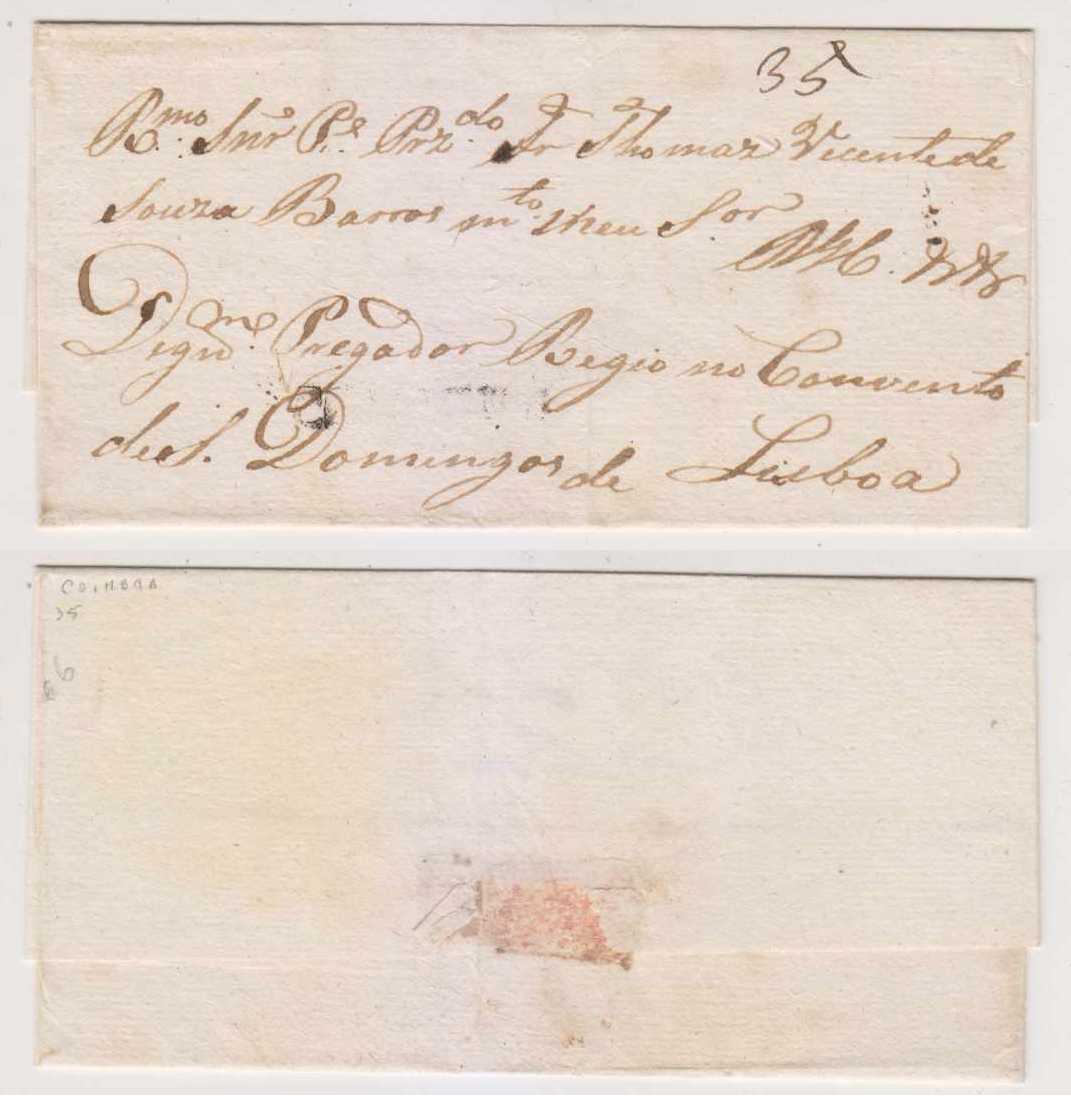 35
R.mo Snr P.e Prz.do Fr Thomaz Vicente de
Souza Barros m.to Meu S.or
Digní.mo Pregador Regio no Convento
de S. Domingos de Lisboa
COIMBRA
35
6